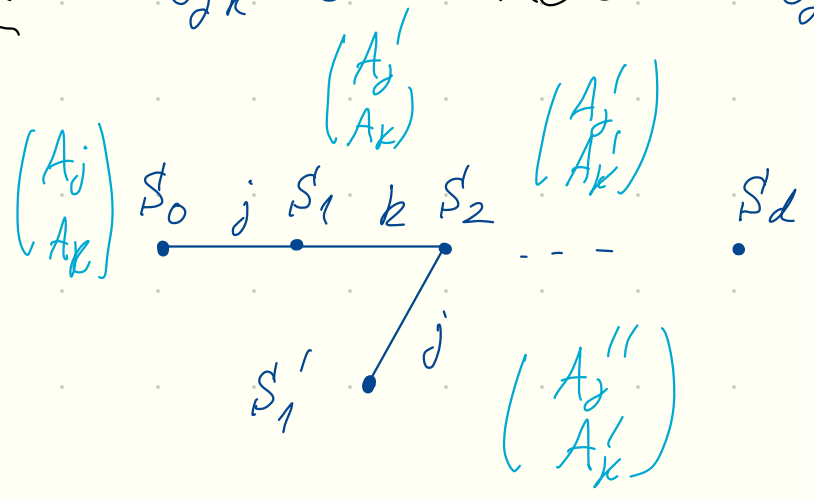 (A_j'
A_k)
(A_j'
A_k')
(A_j
A_k)
S_0 j S_1 k S_2 - - - S_d
j
S_1'
(A_j''
A_k')